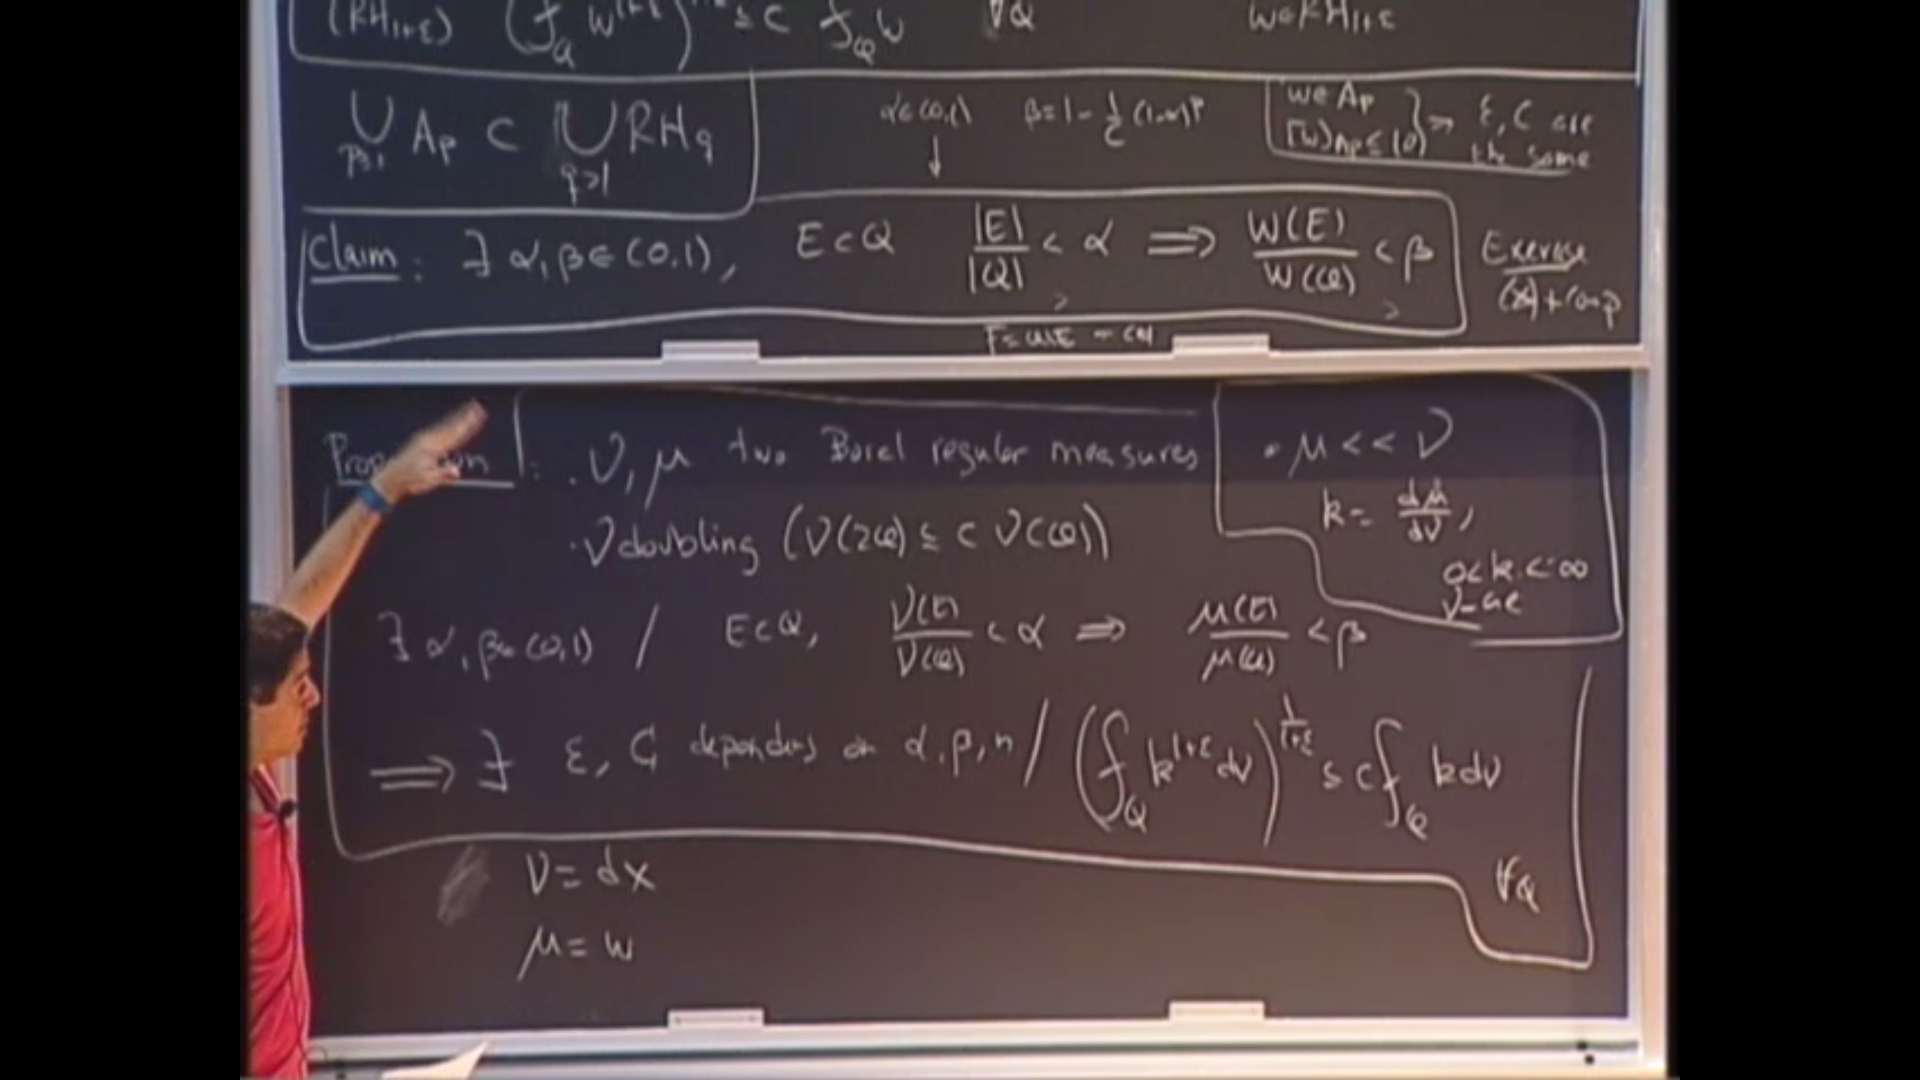 (RH1+ε) (⨍_Q w^{1+ε})^{1/1+ε} ≤ C ⨍_Q w ∀Q w∈RH1+ε
⋃_{p≥1} A_p ⊂ ⋃_{q>1} RH_q
α∈(0,1) β=1-1/C(1-α)^p
↓
w∈A_p
[w]_{A_p}≤10 } ⇒ ε, C are the same
Claim: ∃ α,β∈(0,1), E⊂Q |E|/|Q| < α ⟹ w(E)/w(Q) < β
Exercise
(*)+Comp
Proposition 1: . ν, μ two Borel regular measures
• μ << ν
k = dμ/dν,
0<k<∞
ν-ae
• ν doubling (ν(2Q) ≤ C ν(Q))
∃ α,β∈(0,1) / E⊂Q, ν(E)/ν(Q) < α ⇒ μ(E)/μ(Q) < β
⟹ ∃ ε, C depending on α,β,n / (⨍_Q k^{1+ε} dν)^{1/1+ε} ≤ C ⨍_Q k dν
∀Q
ν = dx
μ = w